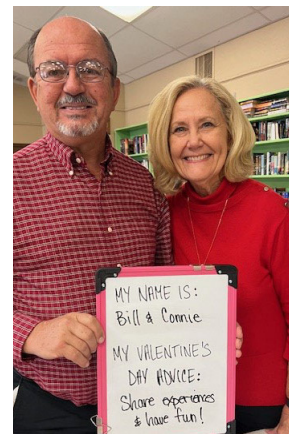 MY NAME IS:
Bill & Connie
MY VALENTINE'S
DAY ADVICE:
Share experiences
& have fun!